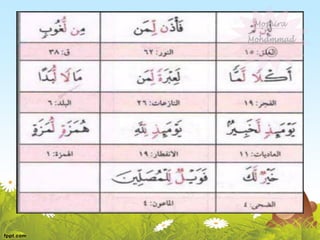 لَئِن لَّمْ
فَأْذَن لِّمَن
مِن لُّغُوبٍ
العلق: ١٥
النور: ٦٢
ق: ٣٨
أَكْلًا لَّمًّا
لَعِبْرَةً لِّمَن
مَالًا لُّبَدًا
الفجر: ١٩
النازعات: ٢٦
البلد: ٦
يَوْمَئِذٍ لَّخَبِيرٌ
يَوْمَئِذٍ لِّلَّهِ
هُمَزَةٍ لُّمَزَةٍ
العاديات: ١١
الانفطار: ١٩
الهمزة: ١
خَيْرٌ لَّكَ
فَوَيْلٌ لِّلْمُصَلِّينَ
الضحى: ٤
الماعون: ٤
Monira
Mohammad
fppt.com